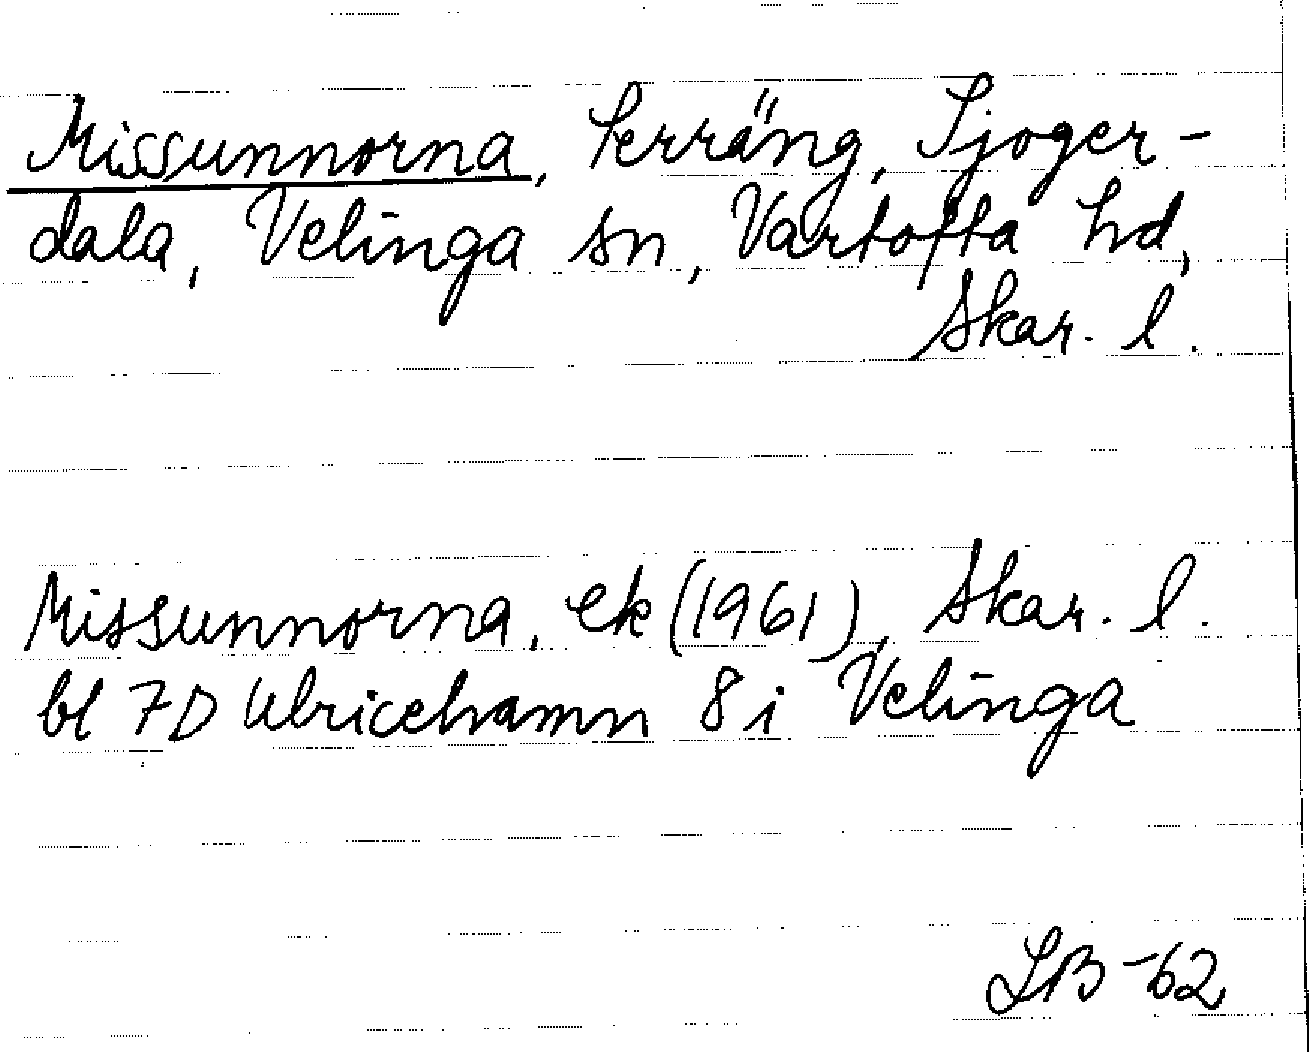 Missunnorna, terräng, Sjoger-
dala, Velinga sn, Vartofta hd,
Skar. l.
Missunnorna, ek (1961), Skar. l.
bl 7D Ulricehamn 8 i Velinga
LB-62